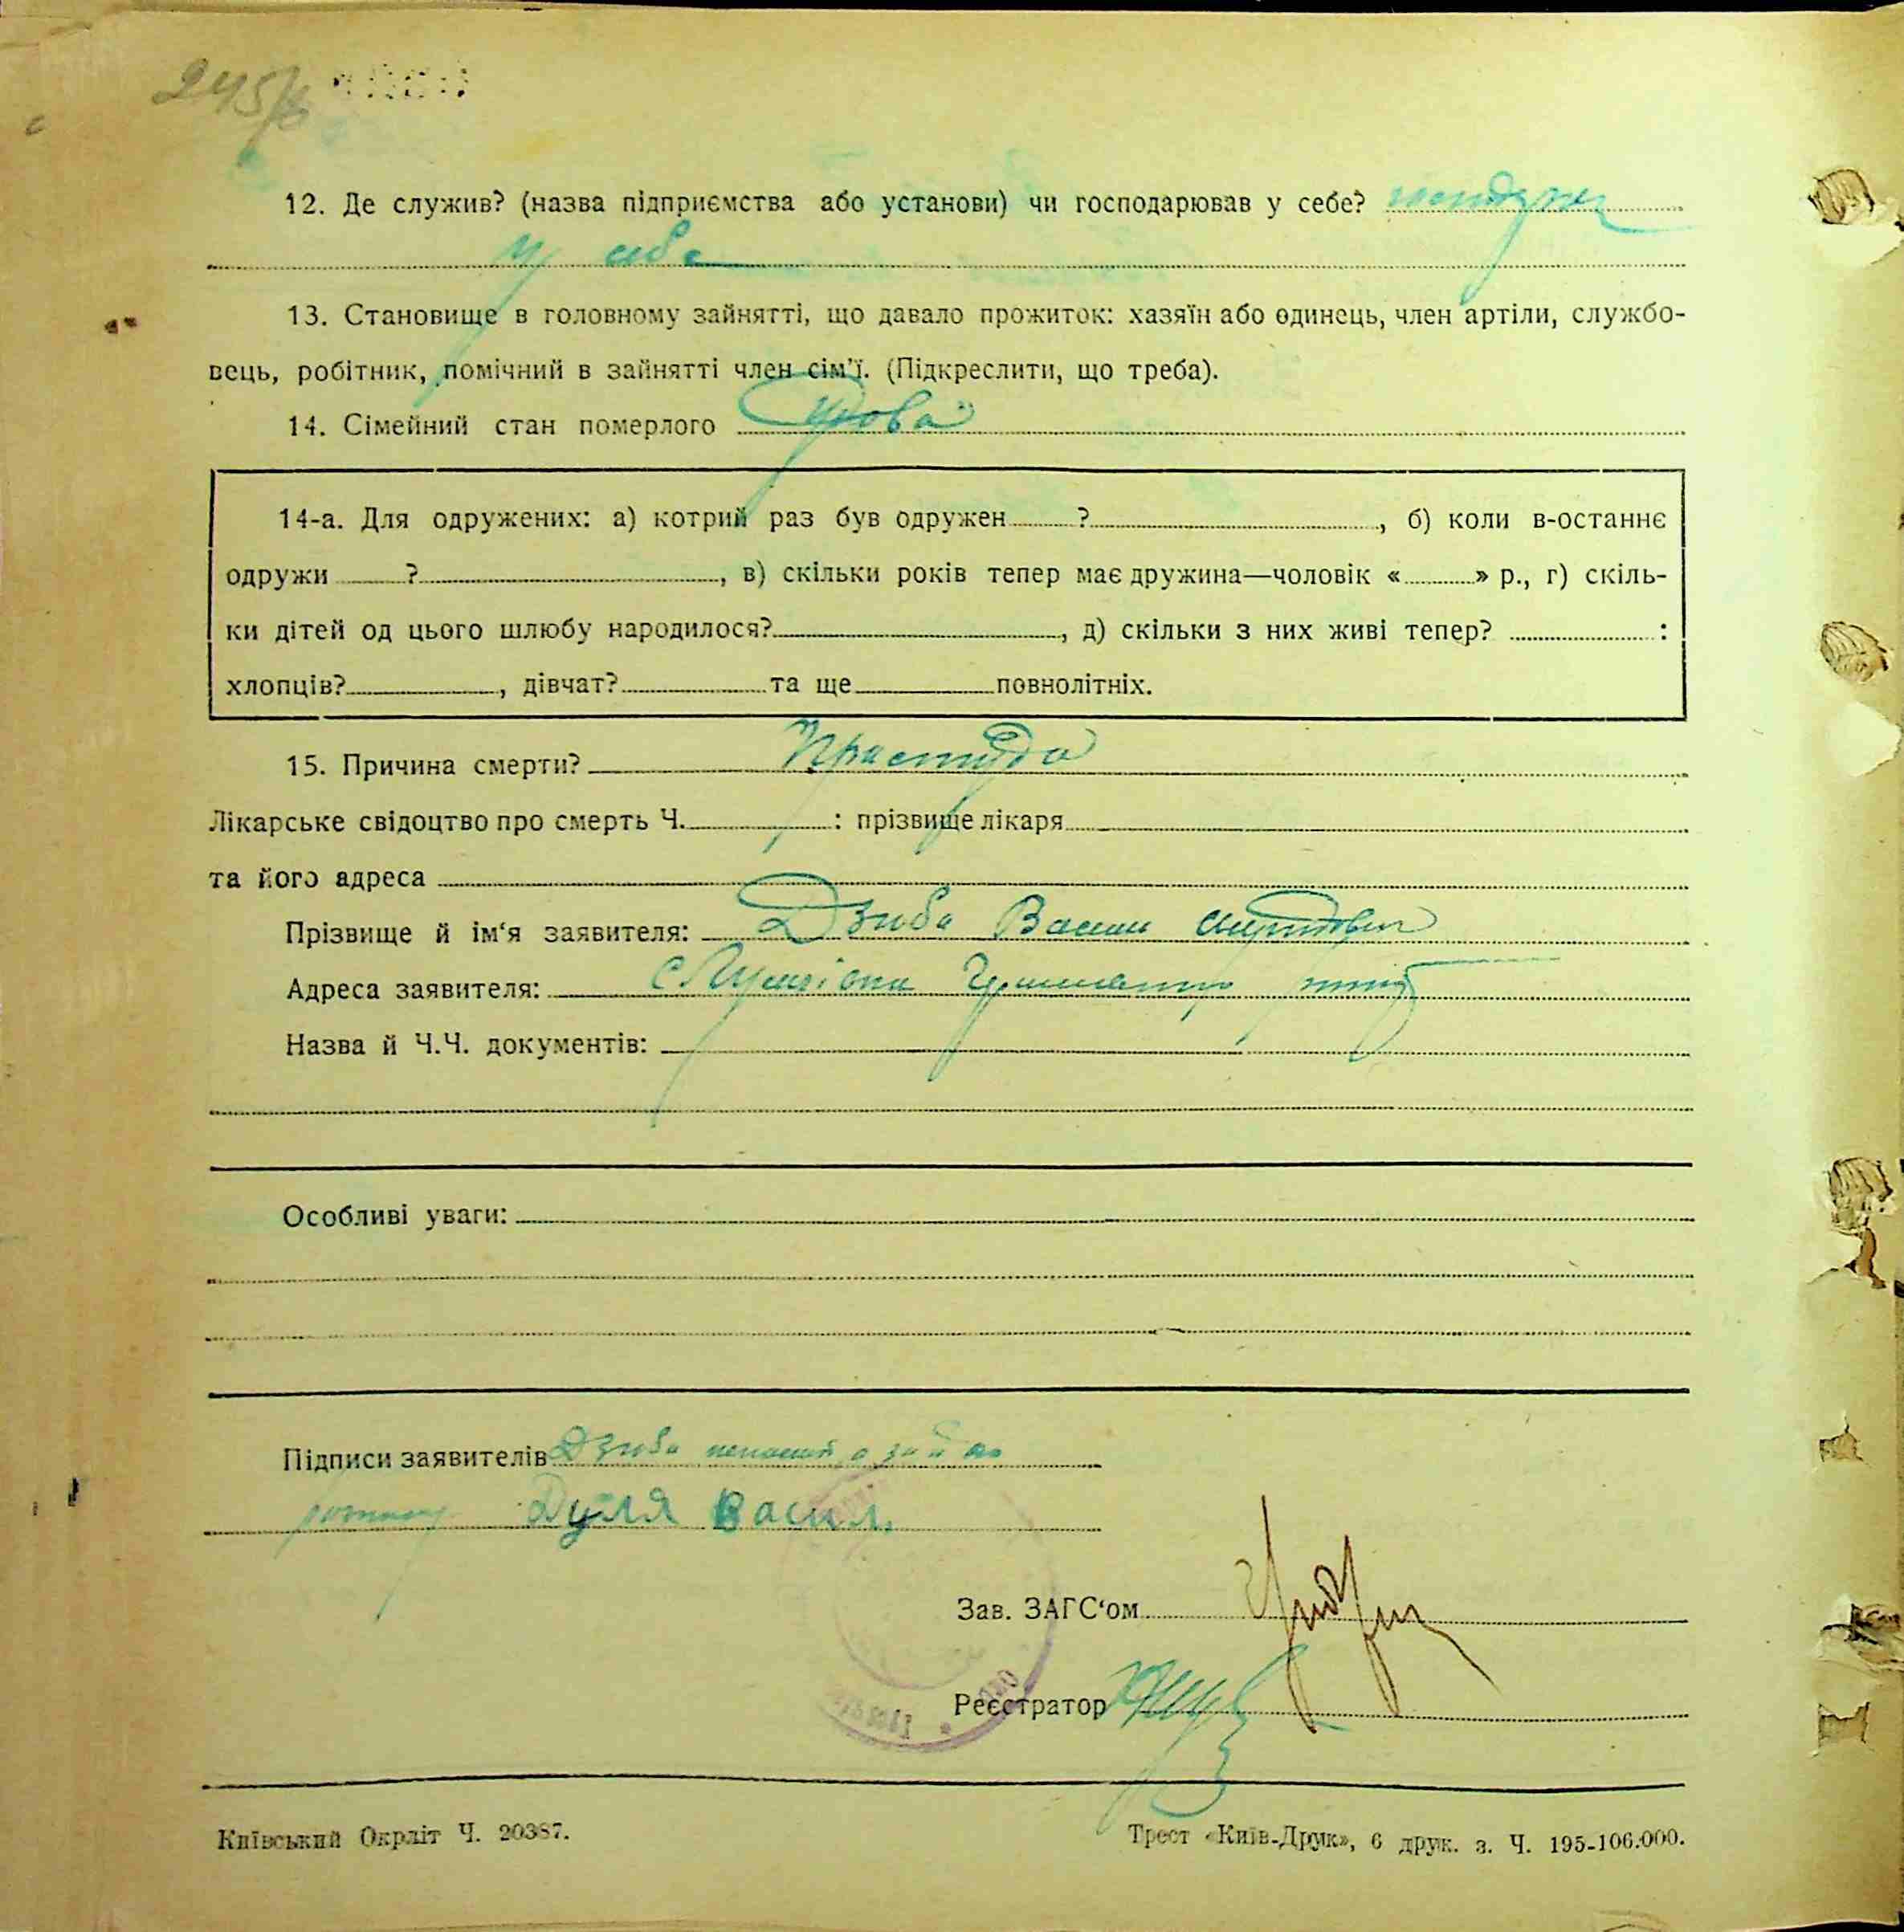 245/в
12. Де служив? (назва підприємства або установи) чи господарював у себе?
у себе
13. Становище в головному зайнятті, що давало прожиток: хазяїн або одинець, член артіли, службо-
вець, робітник, помічний в зайнятті член сім'ї. (Підкреслити, що треба).
14. Сімейний стан померлого удова
14-а. Для одружених: а) котрий раз був одружен ? , б) коли в-останнє
одружи ? , в) скільки років тепер має дружина—чоловік « » р., г) скіль-
ки дітей од цього шлюбу народилося? , д) скільки з них живі тепер? :
хлопців? , дівчат? та ще повнолітніх.
15. Причина смерти? Простуда
Лікарське свідоцтво про смерть Ч. : прізвище лікаря
та його адреса
Прізвище й ім'я заявителя: Дзюба Васил
Адреса заявителя: с
Назва й Ч.Ч. документів:
Особливі уваги:
Підписи заявителів Дзюба
Дуля Васил
Зав. ЗАГС'ом
Реєстратор
Київський Окрліт Ч. 20387.
Трест «Київ-Друк», 6 друк. з. Ч. 195-106.000.